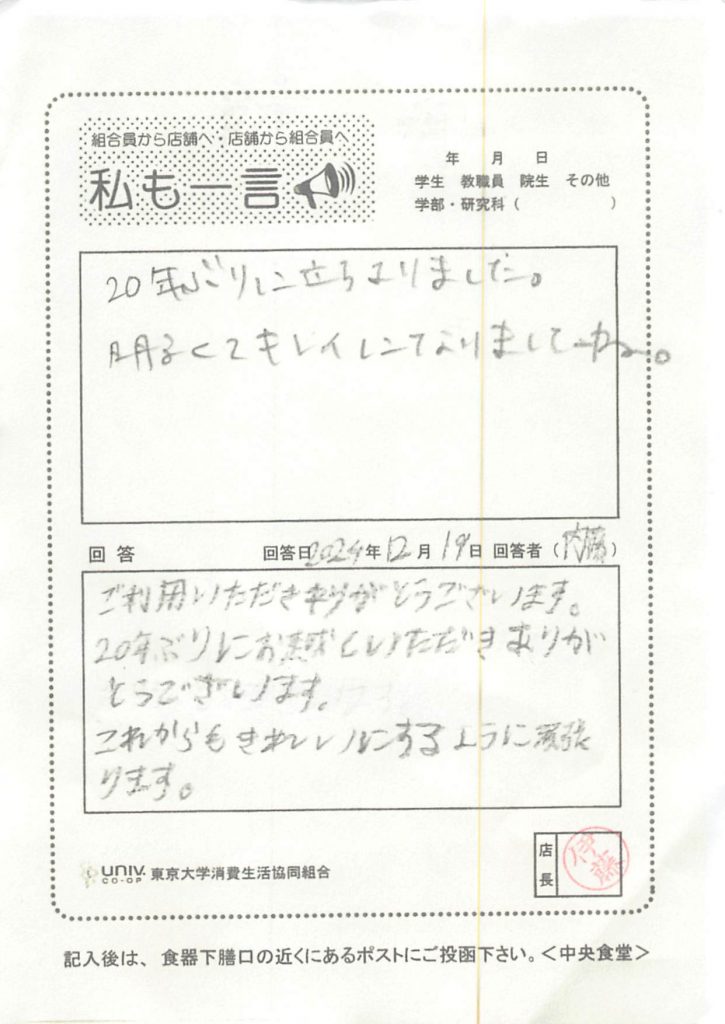 組合員から店舗へ・店舗から組合員へ
私も一言
年 月 日
学生 教職員 院生 その他
学部・研究科（ ）
20年ぶりに立ちよりました。
明るくてキレイになりましたね。
回答 回答日2024年12月19日 回答者（内藤）
ご利用いただきありがとうございます。
20年ぶりにお越しいただきありが
とうございます。
これからもきれいにするように頑張
ります。
店長
伊藤
UNIV. CO-OP 東京大学消費生活協同組合
記入後は、食器下膳口の近くにあるポストにご投函下さい。＜中央食堂＞